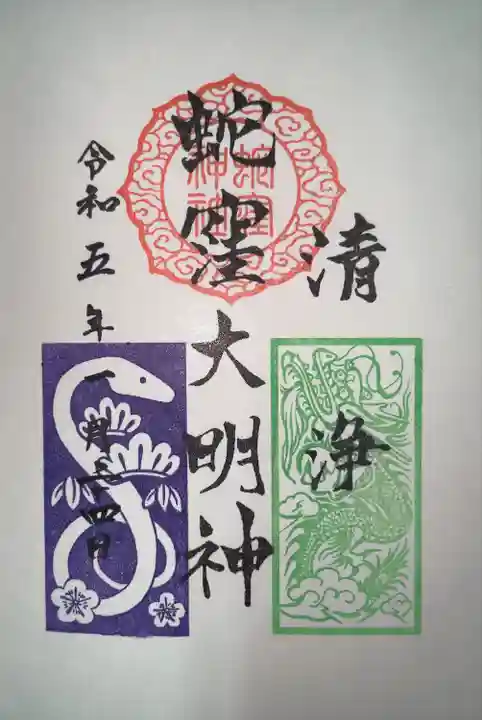 清浄
蛇窪大明神
令和五年一月二十四日